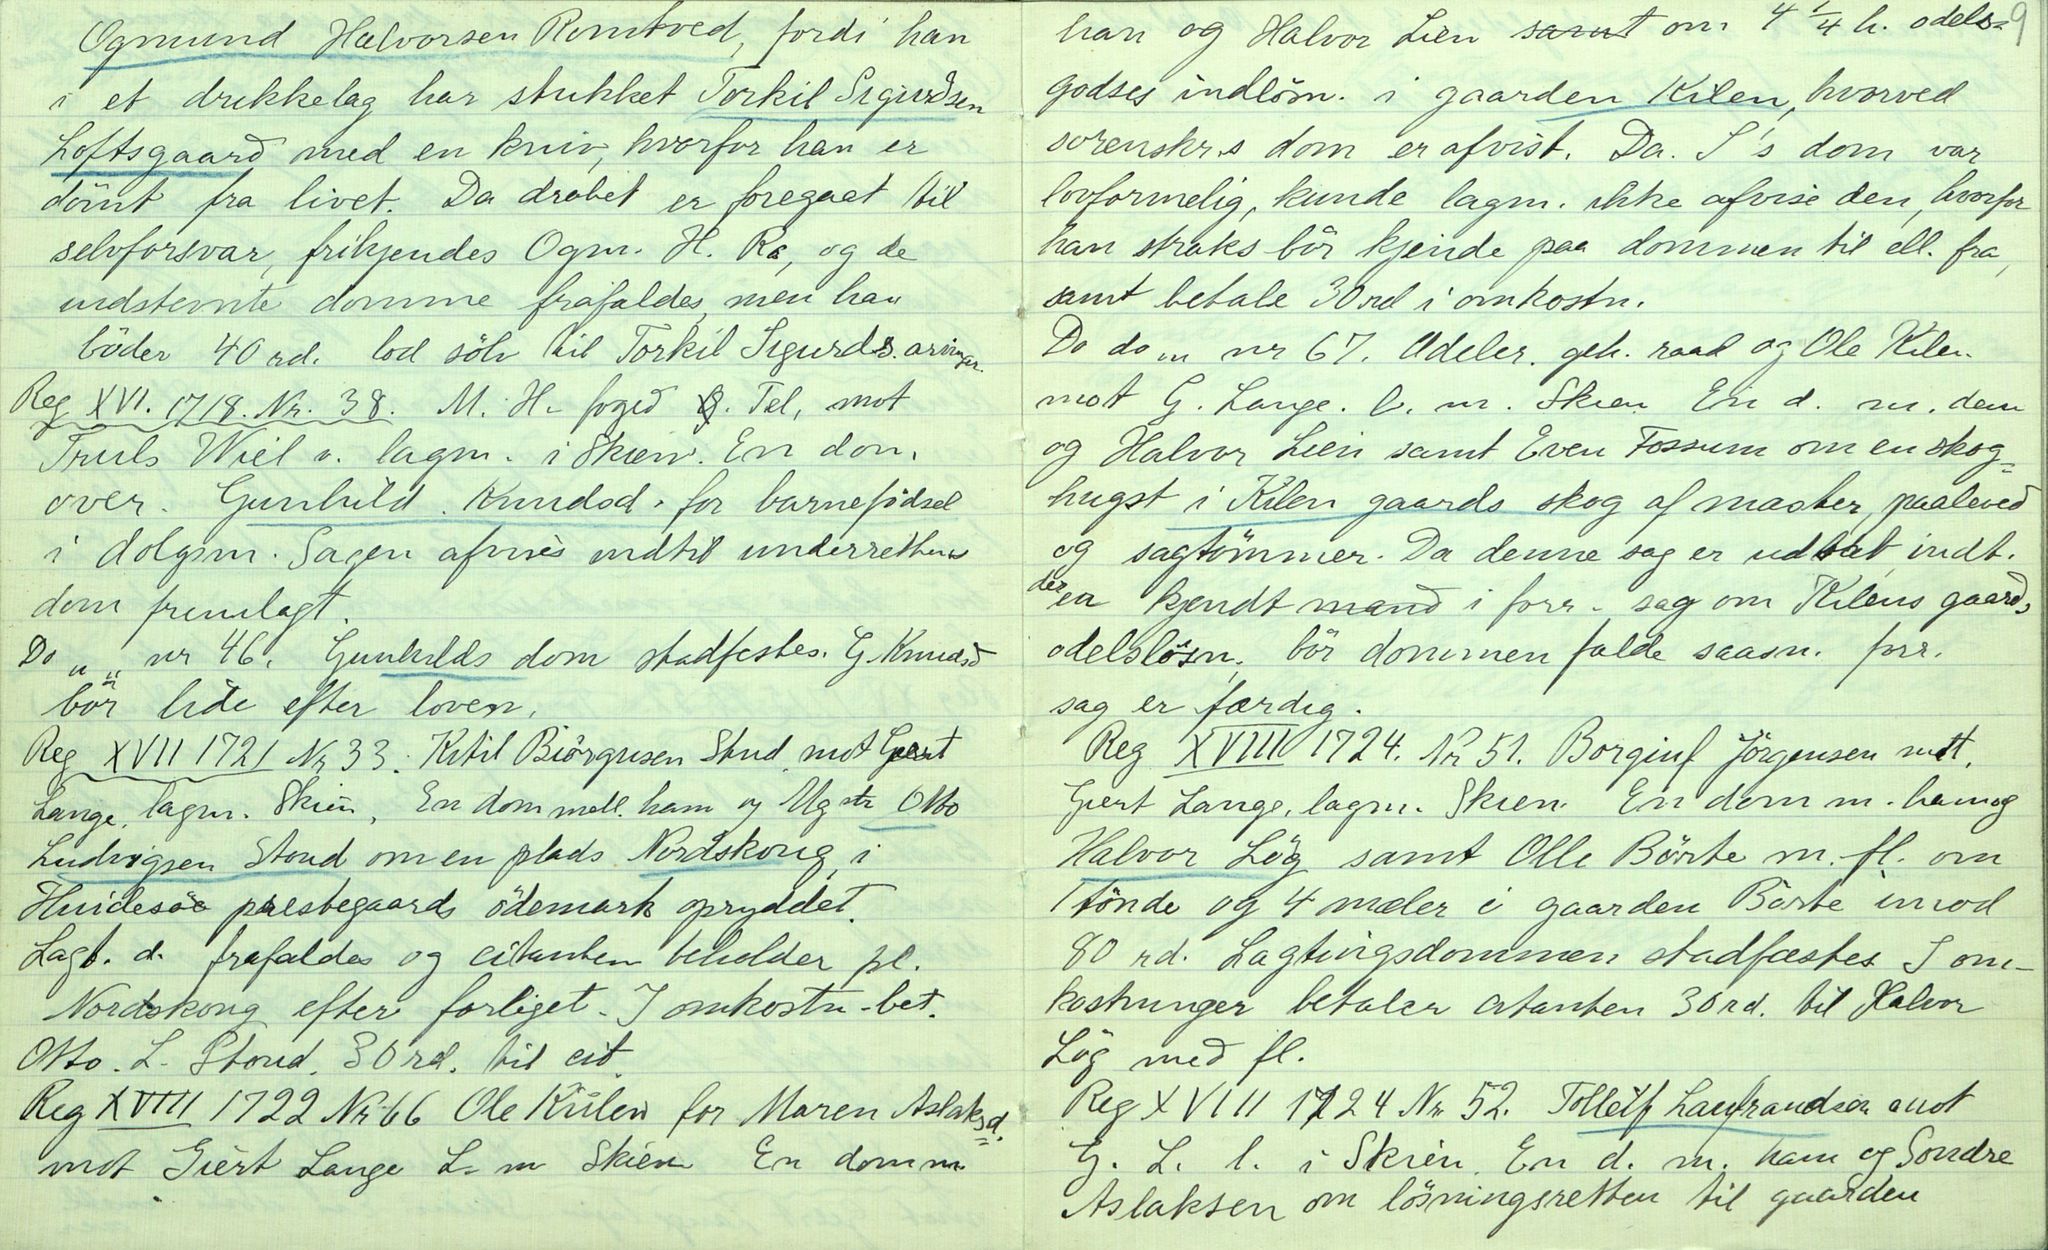 Ogmund Halvorsen Romtved, fordi han
i et drikkelag har stukket Torkil Sigurdsen
Loftsgaard med en kniv, hvorfor han er
dömt fra livet. Da drabet er foregaaet til
selvforsvar, frikjendes Ogm. H. Ro, og de
indstevnte domme frafaldes, men han
böder 40 rd. lod sölv til Torkil Sigurds. arvinger.
Reg XVI. 1718. Nr. 38. M. H. foged Ö. Tel, mot
Truls Wiel v. lagm. i Skien. En dom
over. Gunhild. Knudsd. for barnefödsel
i dolgsm. Sagen afvises indtil underrettens
dom fremlagt.
Do " " nr 46. Gunhilds dom stadfestes. G. Knudsd
bör lide efter loven.
Reg XVII 1721 Nr 33. Kitil Biörgusen Stud mot Geert
Lange, lagm. Skien, En dom mell. ham og Mgstr Otto
Ludvigsen Stoud om en plads Nordskong, i
Huidesöe prestegaards ödemark opryddet.
Lagt. d. frafaldes og citanten beholder pl.
Nordskong efter forliget. I omkostn. bet.
Otto. L. Stoud. 30 rd. til cit.
Reg XVIII 1722 Nr 66 Ole Kiilen for Maren Aslaksd.
mot Giert Lange L. m Skien En dom m
9
han og Halvor Lien samt om 4 1/4 h. odels-
godses indlösn. i gaarden Kilen, hvorved
sorenskr.s dom er afvist. Da. S's dom var
lovformelig, kunde lagm. ikke afvise den, hvorfor
han straks bör kjende paa dommen til ell. fra,
samt betale 30 rd i omkostn.
Do do " nr 67. Adeler. geh. raad og Ole Kilen
mot G. Lange. l. m. Skien En d. m. dem
og Halvor Lien samt Even Fossum om en skog-
hugst i Kilen gaards skog af master, paaleved
og sagtömmer. Da denne sag er udsat indt.
der er kjendt mand i forr. sag om Kilens gaards
odelslösn. bör dommen falde saasn. forr.
sag er færdig.
Reg XVIII 1724. Nr 51. Borginf Jörgensen mot.
Giert Lange, lagm. Skien. En dom m. ham og
Halvor Lög samt Olle Börte m. fl. om
1 tönde og 4 mæler i gaarden Börte imod
80 rd. Lagtingsdommen stadfæstes I om-
kostninger betaler citanten 30 rd. til Halvor
Lög med fl.
Reg XVIII 1724 Nr 52. Tolleif Laufrandsen mot
G. L. l. i Skien. En d. m. ham og Sondre
Aslaksen om lösningsretten til gaarden